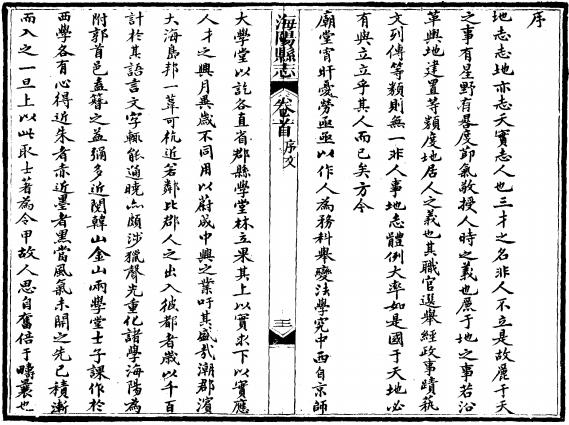 序
地志志地亦志天實志人也三才之名非人不立是故屬于天
之事有星野有晷度節氣敬授人時之義也屬于地之事若沿
革輿地建置等類度地居人之義也其職官選舉經政事蹟藝
文列傳等類則無一非人事地志體例大率如是國于天地必
有與立立乎其人而已矣方今
廟堂宵旰憂勞亟亟以作人為務科舉變法學究中西自京師
海陽縣志
卷首
序文
三
大學堂以訖各直省郡縣學堂林立果其上以實求下以實應
人才之興月異歲不同用以蔚成中興之業吁其盛哉潮郡濱
大海島邦一葦可杭近若鄰比郡人之出入彼都者歲以千百
計於其語言文字輒能通曉亦頗涉獵聲光重化諸學海陽為
附郭首邑盍簪之益彌多近閱韓山金山兩學堂士子課作於
西學各有心得近朱者赤近墨者黑當風氣未開之先已積漸
而入之一旦上以此取士著為令甲故人思自奮倍于疇曩也